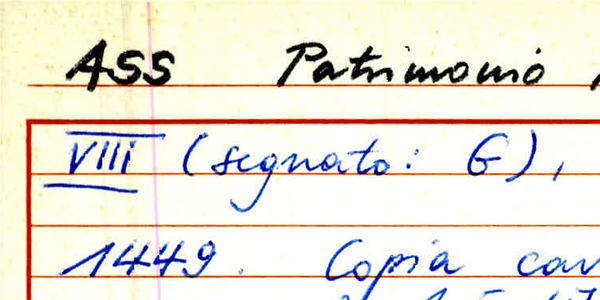 ASS Patrimonio
VIII (segnato: G),
1449. Copia